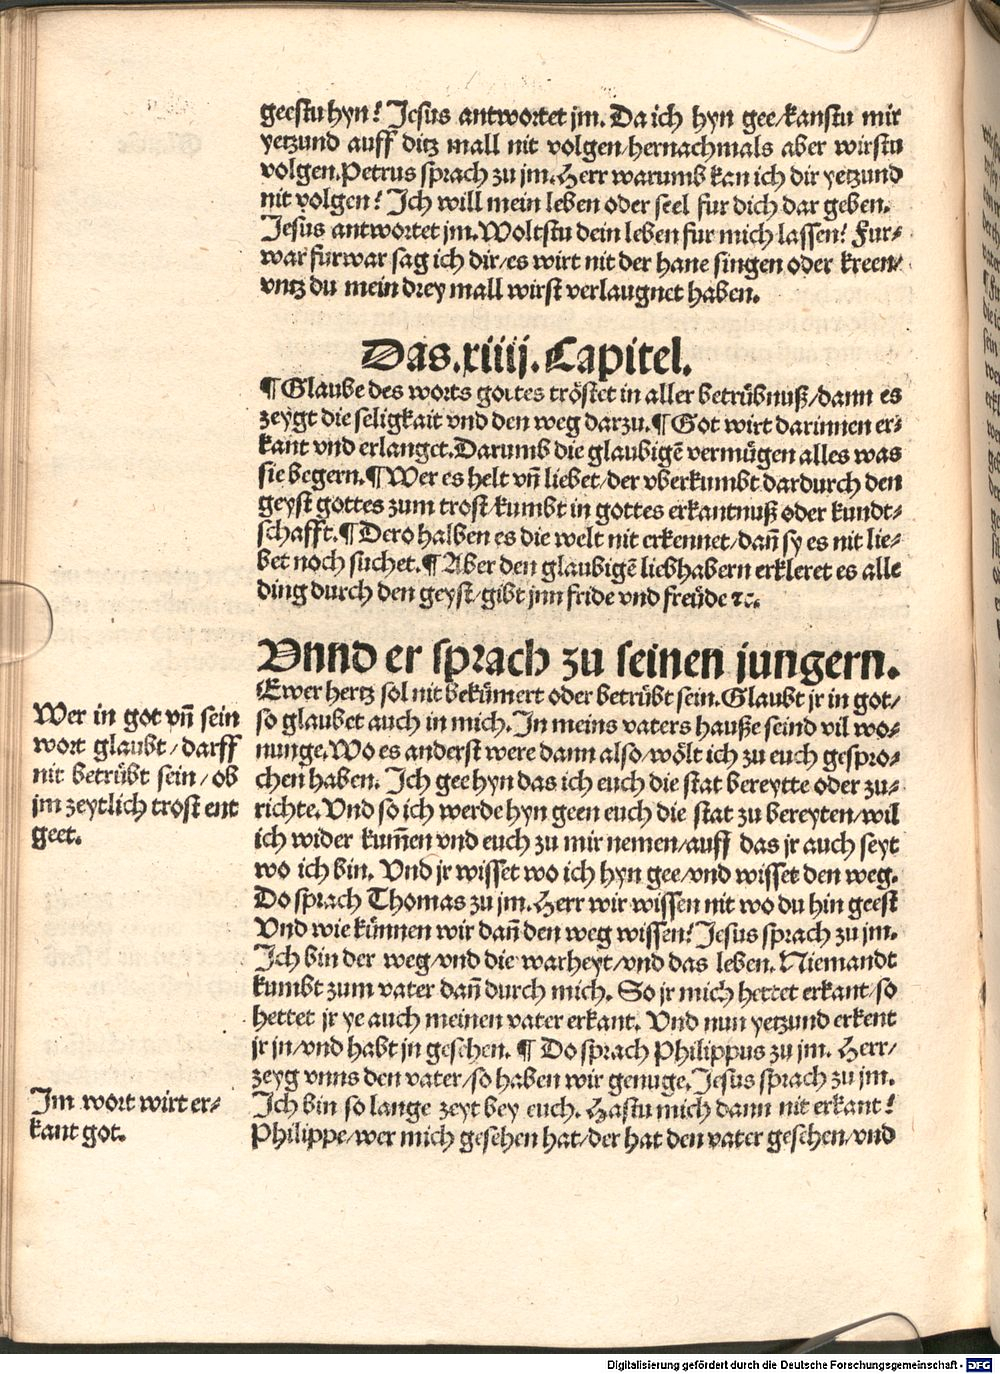 geestu hyn? Jesus antwortet jm. Da ich hyn gee/kanstu mir
yetzund auff ditz mall nit volgen/hernachmals aber wirstu
volgen. Petrus sprach zu jm. Herr warumb kan ich dir yetzund
nit volgen? Ich will mein leben oder seel fur dich dar geben.
Jesus antwortet jm. Woltstu dein leben fur mich lassen? Fur-
war furwar sag ich dir/es wirt nit der hane singen oder kreen/
vntz du mein drey mall wirst verlaugnet haben.
Das .xiiij. Capitel.
¶ Glaube des worts gottes tröstet in aller betrübnuß/dann es
zeygt die seligkait vnd den weg darzu. ¶ Got wirt darinnen er-
kant vnd erlanget. Darumb die glaubigē vermügen alles was
sie begern. ¶ Wer es helt vn̄ liebet/der vberkumbt dardurch den
geyst gottes zum trost/kumbt in gottes erkantnuß oder kundt-
schafft. ¶ Dero halben es die welt nit erkennet/dan̄ sy es nit lie-
bet noch suchet. ¶ Aber den glaubigē liebhabern erkleret es alle
ding durch den geyst/gibt jnn fride vnd freüde ⁊c.
Vnnd er sprach zu seinen jungern.
Ewer hertz sol nit bekümert oder betrübt sein. Glaubt jr in got/
so glaubet auch in mich. In meins vaters hauße seind vil wo-
nunge. Wo es anderst were dann also/wölt ich zu euch gespro-
chen haben. Ich gee hyn das ich euch die stat bereytte oder zu-
richte. Vnd so ich werde hyn geen euch die stat zu bereyten/wil
ich wider kum̄en vnd euch zu mir nemen/auff das jr auch seyt
wo ich bin. Vnd jr wisset wo ich hyn gee/vnd wisset den weg.
Do sprach Thomas zu jm. Herr wir wissen nit wo du hin geest
Vnd wie künnen wir dan̄ den weg wissen? Jesus sprach zu jm.
Ich bin der weg/vnd die warheyt/vnd das leben. Niemandt
kumbt zum vater dan̄ durch mich. So jr mich hettet erkant/so
hettet jr ye auch meinen vater erkant. Vnd nun yetzund erkent
jr jn/vnd habt jn gesehen. ¶ Do sprach Philippus zu jm. Herr/
zeyg vnns den vater/so haben wir genuge. Jesus sprach zu jm.
Ich bin so lange zeyt bey euch. Hastu mich dann nit erkant?
Philippe/wer mich gesehen hat/der hat den vater gesehen/vnd
Wer in got vn̄ sein
wort glaubt/darff
nit betrübt sein/ob
jm zeytlich trost ent
geet.
Im wort wirt er-
kant got.
Digitalisierung gefördert durch die Deutsche Forschungsgemeinschaft - DFG